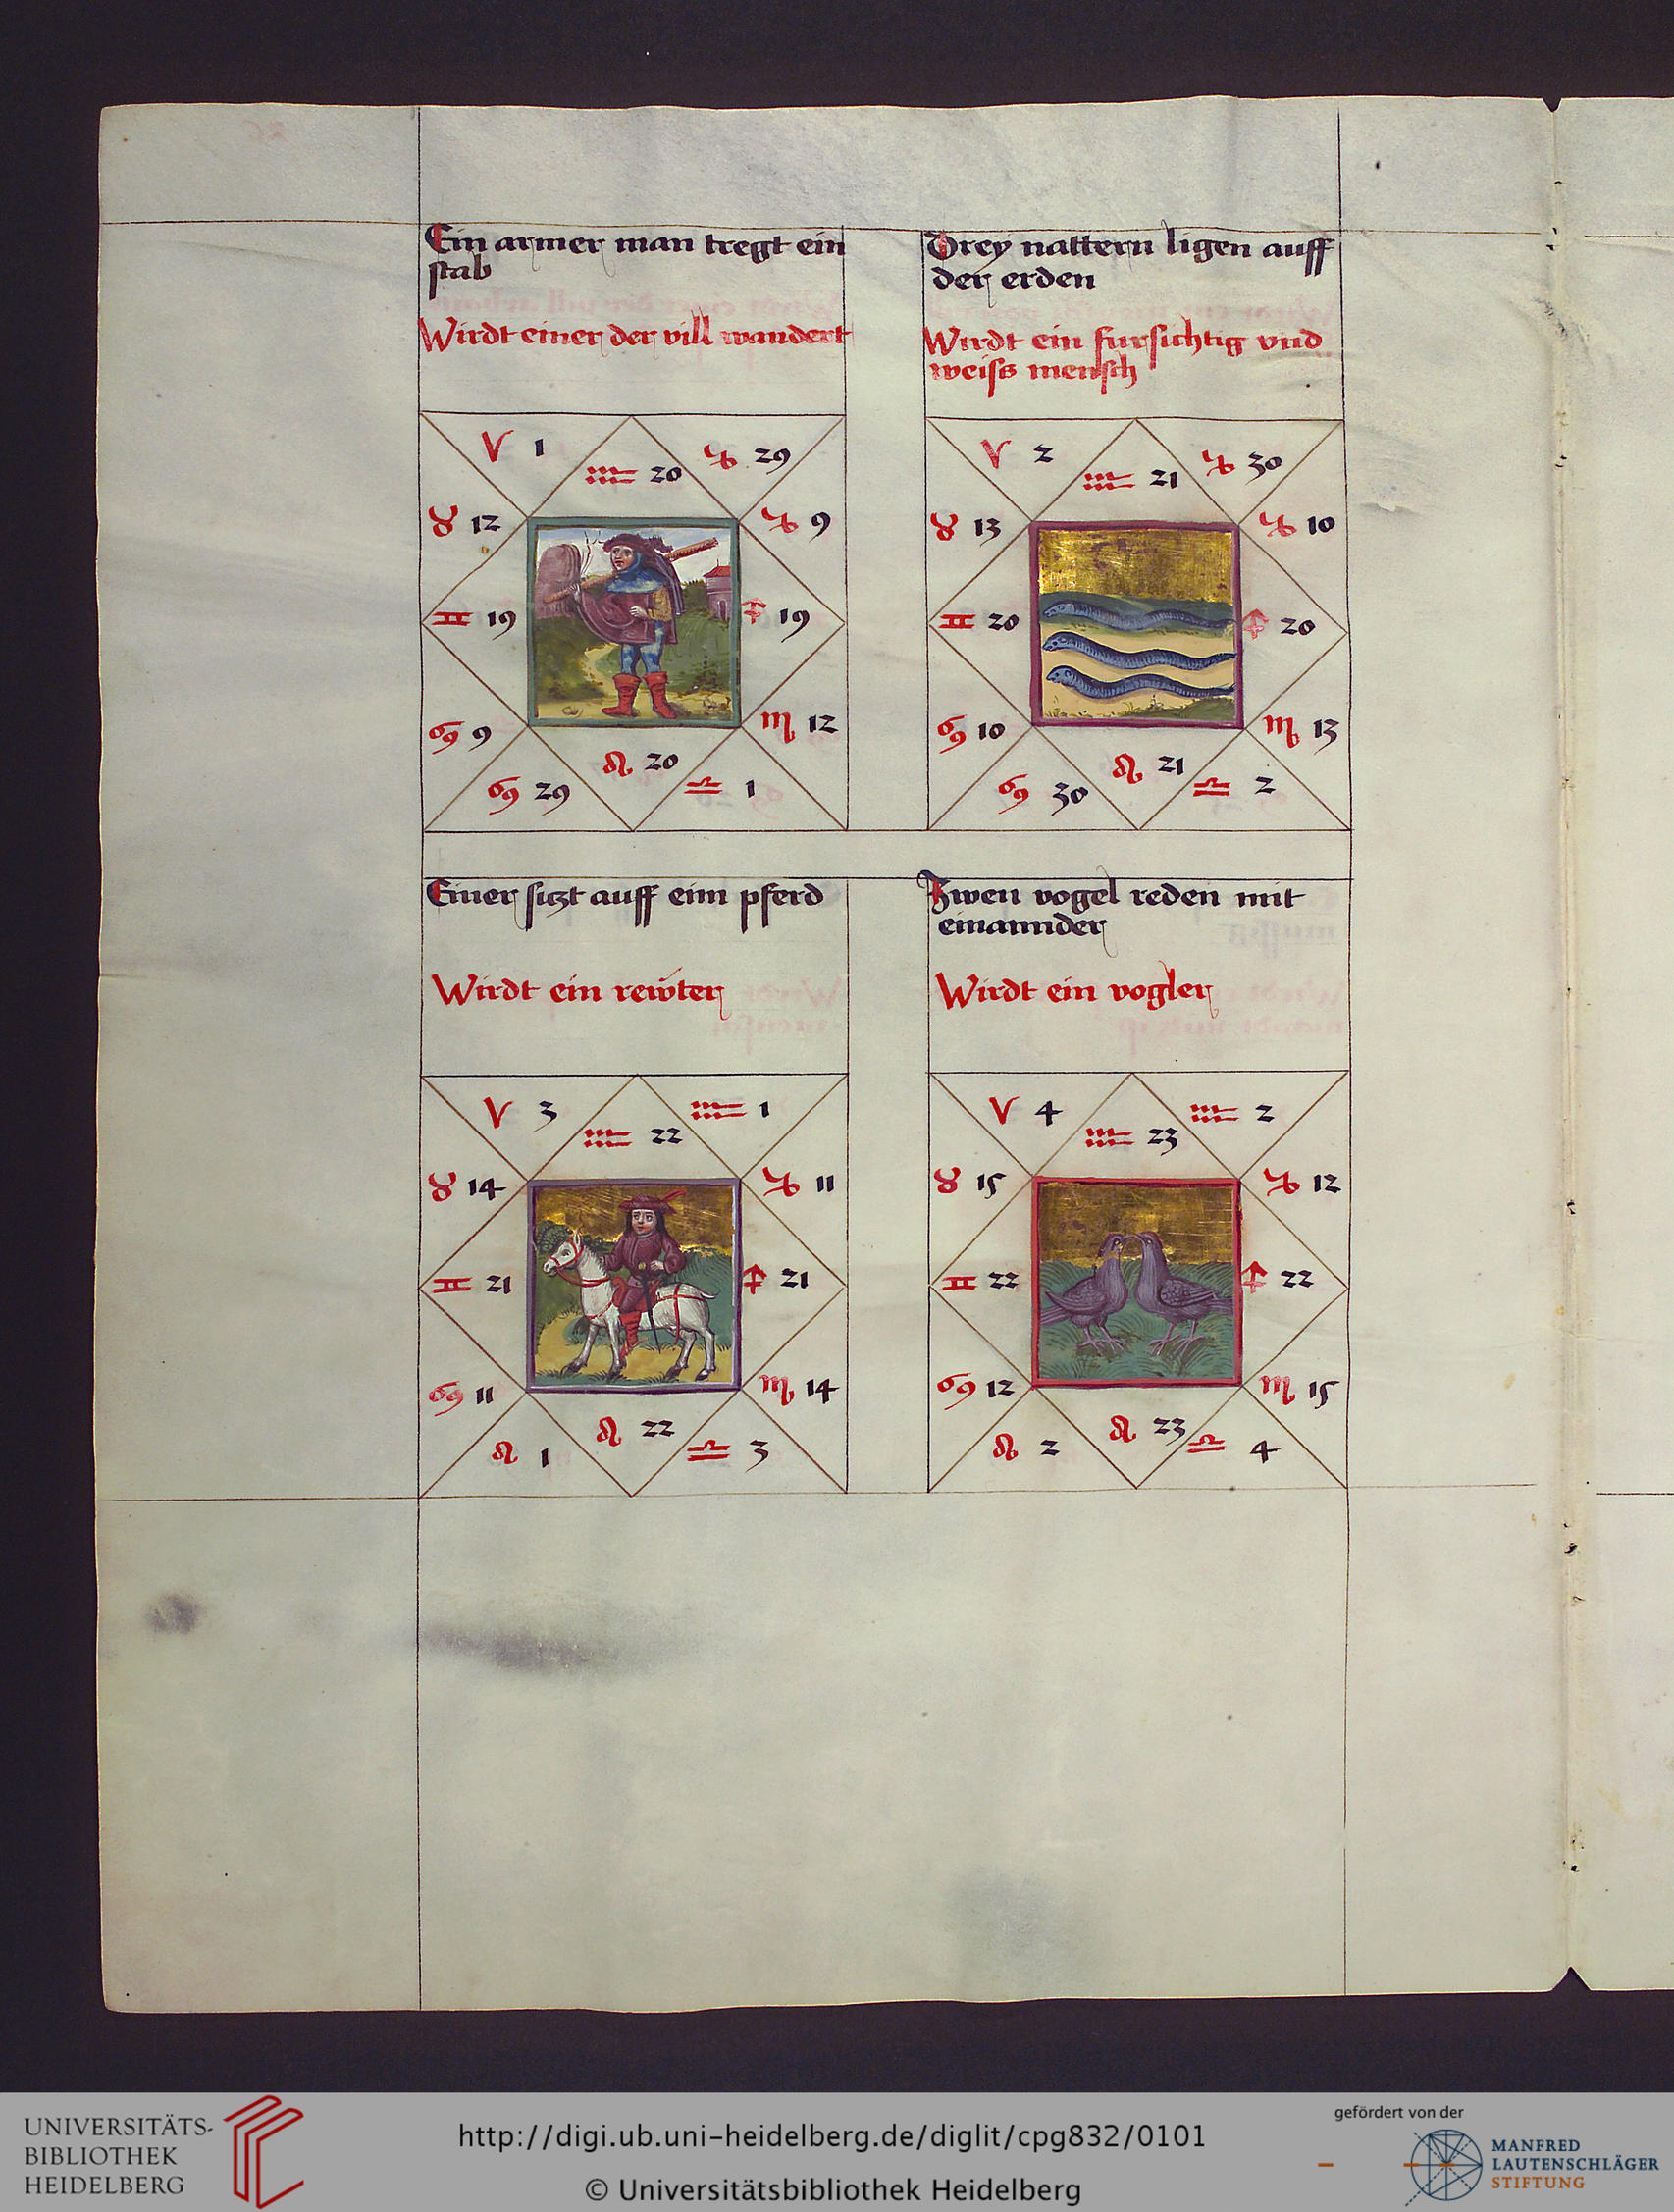 Ein armer man tregt ein
stab
Wirdt einer der vill wandert
♈ 1
♒ 20
♑ 29
♉ 12
♑ 9
♊ 19
♐ 19
♋ 9
♏ 12
♋ 29
♌ 20
♎ 1
Drey nattern ligen auff
der erden
Wirdt ein fursichtig vnd
weiss mensch
♈ 2
♒ 21
♑ 30
♉ 13
♑ 10
♊ 20
♐ 20
♋ 10
♏ 13
♋ 30
♌ 21
♎ 2
Einer sitzt auff eim pferd
Wirdt ein rewter
♈ 3
♒ 22
♒ 1
♉ 14
♑ 11
♊ 21
♐ 21
♋ 11
♏ 14
♌ 1
♌ 22
♎ 3
Zwen vogel reden mit
einannder
Wirdt ein vogler
♈ 4
♒ 23
♒ 2
♉ 15
♑ 12
♊ 22
♐ 22
♋ 12
♏ 15
♌ 2
♌ 23
♎ 4
UNIVERSITÄTS-
BIBLIOTHEK
HEIDELBERG
http://digi.ub.uni-heidelberg.de/diglit/cpg832/0101
© Universitätsbibliothek Heidelberg
gefördert von der
MANFRED
LAUTENSCHLÄGER
STIFTUNG